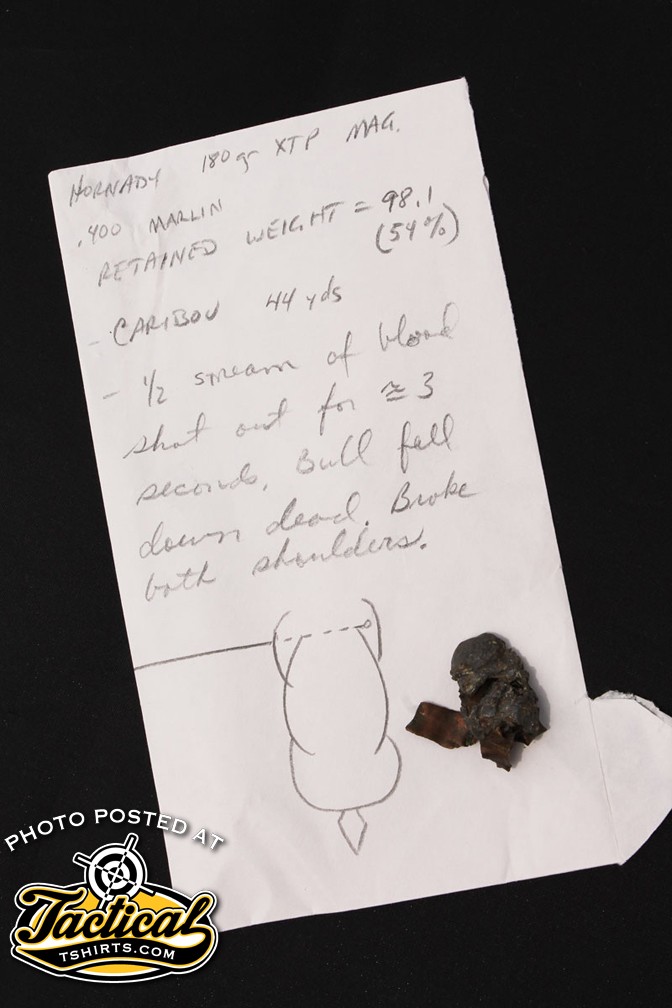 HORNADY 180 gr XTP MAG.
.400 MARLIN
RETAINED WEIGHT = 98.1
(54%)
- CARIBOU 44 yds
- 1/2 stream of blood
shot out for ≅ 3
seconds. Bull fell
down dead. Broke
both shoulders.
PHOTO POSTED AT
Tactical
TSHIRTS.COM